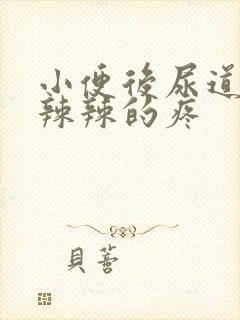 小便後尿道
辣辣的疼
貝蕾